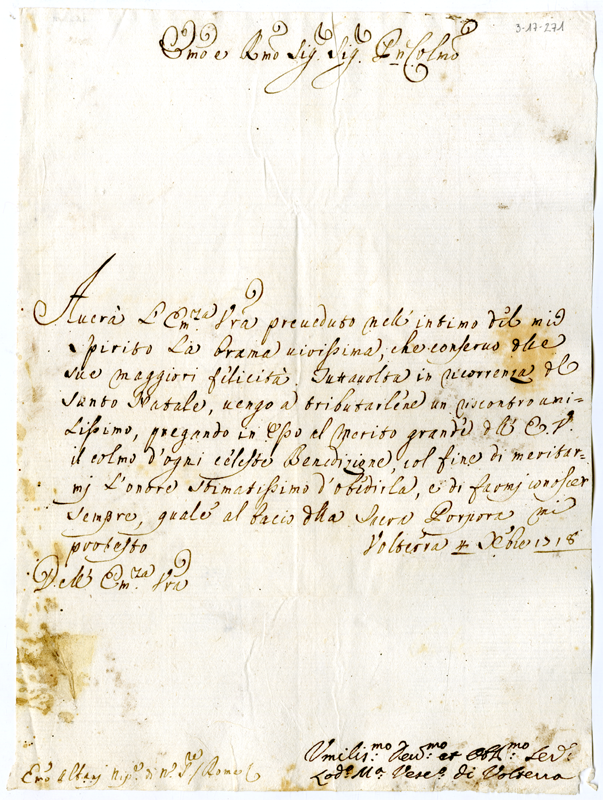 3-17-271
Emo e Rmo Sig. Sig. Pn Colmo
Averà L'Em.za Vra preveduto nell'intimo del mio
Spirito La brama vivissima, che conservo delle
sue maggiori felicità. Tuttavolta in ricorrenza del
Santo Natale, vengo a tributarlene un riscontro umi-
lissimo, pregando in Esso al Merito grande dell'E. V.
il colmo d'ogni celeste Benedizione, col fine di meritar-
mi L'onore stimatissimo d'obedirla, e di farmi conoscer
sempre, quale al bacio della Sacra Porpora mi
protesto Volterra 4 Xbre 1718
Dell'Em.za Vra
Umilis.mo Dev.mo et Obb.mo Ser.
Lod.o M.a Vesc.o di Volterra
Roma